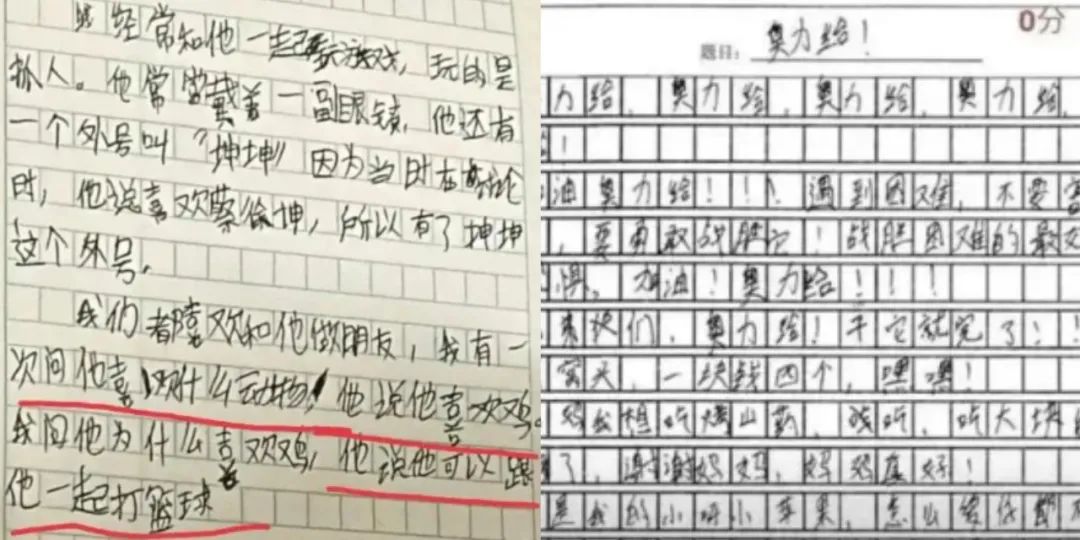 我经常和他一起玩游戏，玩的是
抓人。他常常戴着一副眼镜，他还有
一个外号叫“坤坤”因为当时在讨论
时，他说喜欢蔡徐坤，所以有了坤坤
这个外号。
我们都喜欢和他做朋友，我有一
次问他喜欢什么动物，他说他喜欢鸡。
我问他为什么喜欢鸡，他说他可以跟
他一起打篮球
0分
题目：奥力给！
力给，奥力给，奥力给，奥力给，
！
油奥力给！！！遇到困难，不要害
，要勇敢战胜它！战胜困难的最好
惧，加油！奥力给！！！
来伙们，奥力给！干它就完了！！
窝头，一块钱四个，嘿嘿！
我想吃烤山药，
了，谢谢妈妈，妈妈真好！
是我的小呀小苹果，怎么爱你都不